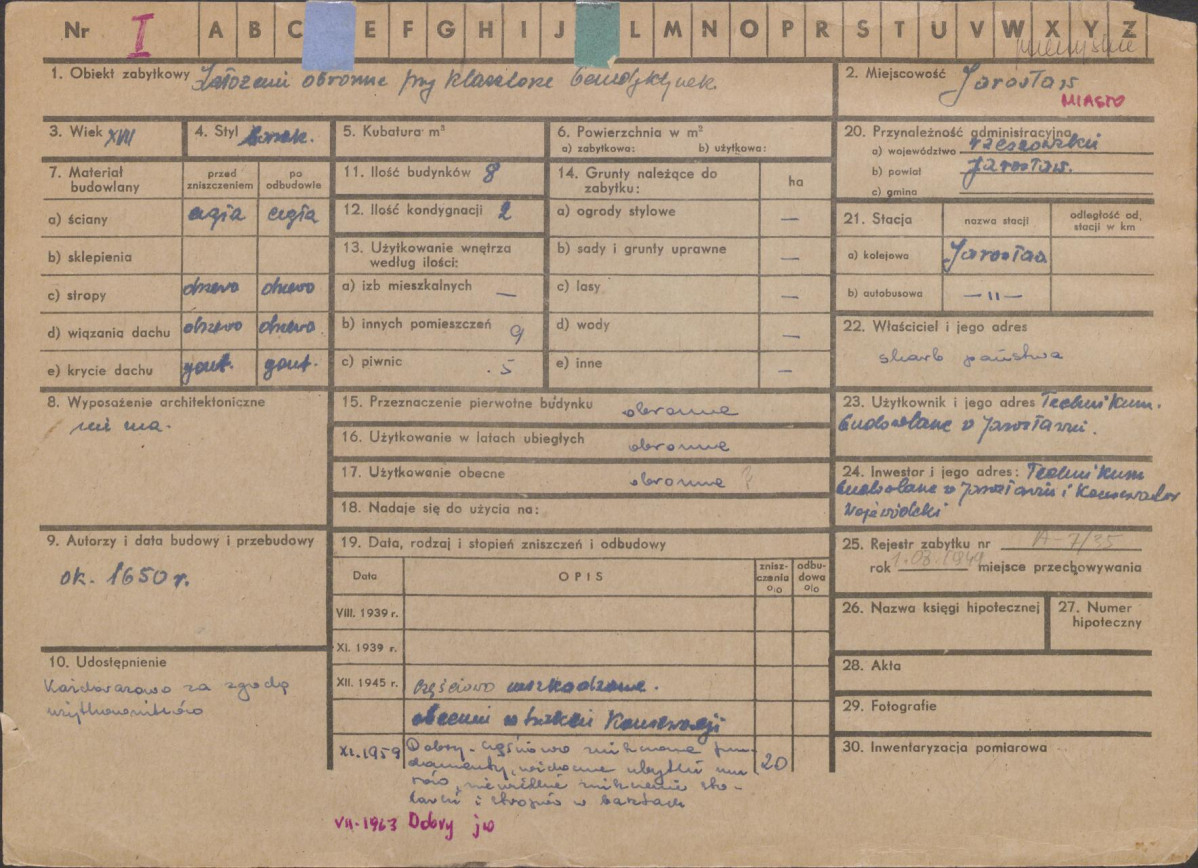 Nr I A B C E F G H I J L M N O P R S T U V W X Y Z
1. Obiekt zabytkowy Założenie obronne przy klasztorze benedyktynek
2. Miejscowość Jarosław
MIASTO
3. Wiek XVII
4. Styl barok.
5. Kubatura m³
6. Powierzchnia w m²
a) zabytkowa: b) użytkowa:
7. Materiał budowlany
przed zniszczeniem
po odbudowie
a) ściany cegła cegła
b) sklepienia
c) stropy drzewo drzewo
d) wiązania dachu drzewo drzewo
e) krycie dachu gont. gont.
8. Wyposażenie architektoniczne
nie ma.
9. Autorzy i data budowy i przebudowy
ok. 1650 r.
10. Udostępnienie
Każdorazowo za zgodą
użytkowników
11. Ilość budynków 8
12. Ilość kondygnacji 2
13. Użytkowanie wnętrza
według ilości:
a) izb mieszkalnych —
b) innych pomieszczeń 9
c) piwnic . 5
14. Grunty należące do
zabytku:
ha
a) ogrody stylowe —
b) sady i grunty uprawne —
c) lasy —
d) wody —
e) inne —
15. Przeznaczenie pierwotne budynku obronne
16. Użytkowanie w latach ubiegłych obronne
17. Użytkowanie obecne obronne ?
18. Nadaje się do użycia na:
19. Data, rodzaj i stopień zniszczeń i odbudowy
Data OPIS znisz-czenia o/o odbu-dowa o/o
VIII. 1939 r.
XI. 1939 r.
XII. 1945 r. częściowo uszkodzone.
obecnie w trakcie Konserwacji
XI.1959 Dobry - częściowo zniszczone fun-
damenty, widoczne ubytki mu-
rów, niewielkie zniszczenie sto-
larki i stropów w basztach
20
VII-1963 Dobry jw
20. Przynależność administracyjna
a) województwo rzeszowskie
b) powiat Jarosław.
c) gmina
21. Stacja nazwa stacji odległość od, stacji w km
a) kolejowa Jarosław
b) autobusowa — " —
22. Właściciel i jego adres
skarb państwa
23. Użytkownik i jego adres Technikum.
budowlane w Jarosławiu.
24. Inwestor i jego adres: Technikum
budowlane w Jarosławiu i Konserwator
Wojewódzki
25. Rejestr zabytku nr A-7/35
rok miejsce przechowywania
26. Nazwa księgi hipotecznej
27. Numer
hipoteczny
28. Akta
29. Fotografie
30. Inwentaryzacja pomiarowa